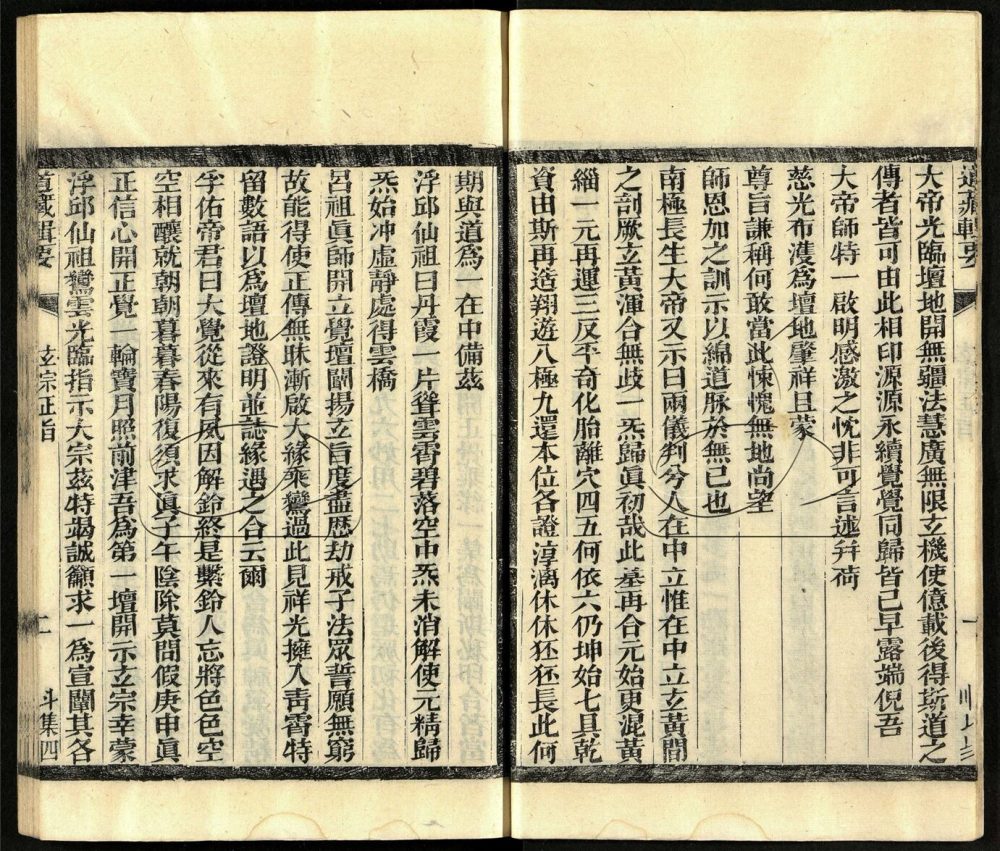 道藏輯要
大帝光臨壇地開無疆法慧廣無限玄機使億載後得斯道之
傳者皆可由此相印源源永續覺覺同歸皆已早露端倪吾
大帝師特一啟明感激之忱非可言述幷荷
慈光布濩為壇地肇祥且蒙
尊旨謙稱何敢當此悚愧無地尚望
師恩加之訓示以綿道脉於無已也
南極長生大帝又示曰兩儀判兮人在中立惟在中立玄黃間
之剖厥立黃渾合無歧一炁歸眞初哉此基再合元始更混黃
緇一元再運三反平奇化胎離穴四五何依六仍坤始七具乾
資由斯再造翔遊八極九還本位各證淳漓休休狉狉長此何
期與道為一在中備茲
浮邱仙祖曰丹霞一片聳雲霄碧落空中炁未消解使元精歸
炁始沖虛靜處得雲橋
呂祖眞師開立覺壇闡揚玄旨度盡歷劫戒子法眾誓願無窮
故能得使正傳無昧漸啟大緣乘鸞過此見祥光擁入靑霄特
留數語以為壇地證明並誌緣遇之合云爾
孚佑帝君曰大覺從來有風因解鈴終是繫鈴人忘將色色空
空相釀就朝朝暮暮春陽復須求眞子午陰除莫問假庚申眞
正信心開正覺一輪寶月照前津吾為第一壇開示玄宗幸蒙
浮邱仙祖鸞雲光臨指示大宗茲特竭誠籲求一為宣闡其各
道藏輯要
玄宗正旨
二
斗集四